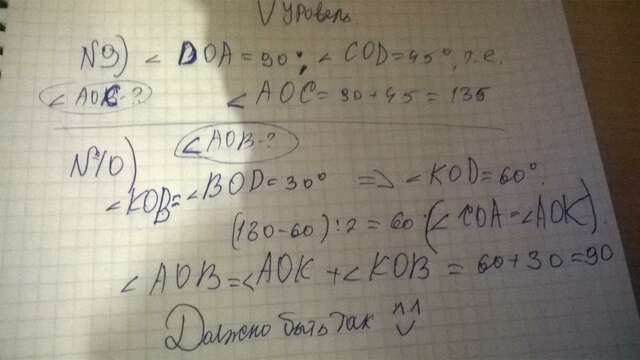 V уровень.
N9) < DOA = 90°, < COD = 45°, т.е.
< AOC - ? < AOC = 90 + 45 = 135
N10) < AOB - ?
< KOB = < BOD = 30° => < KOD = 60°.
(180 - 60) : 2 = 60 (< COA = < AOK).
< AOB = < AOK + < KOB = 60 + 30 = 90
Должно быть так ^^